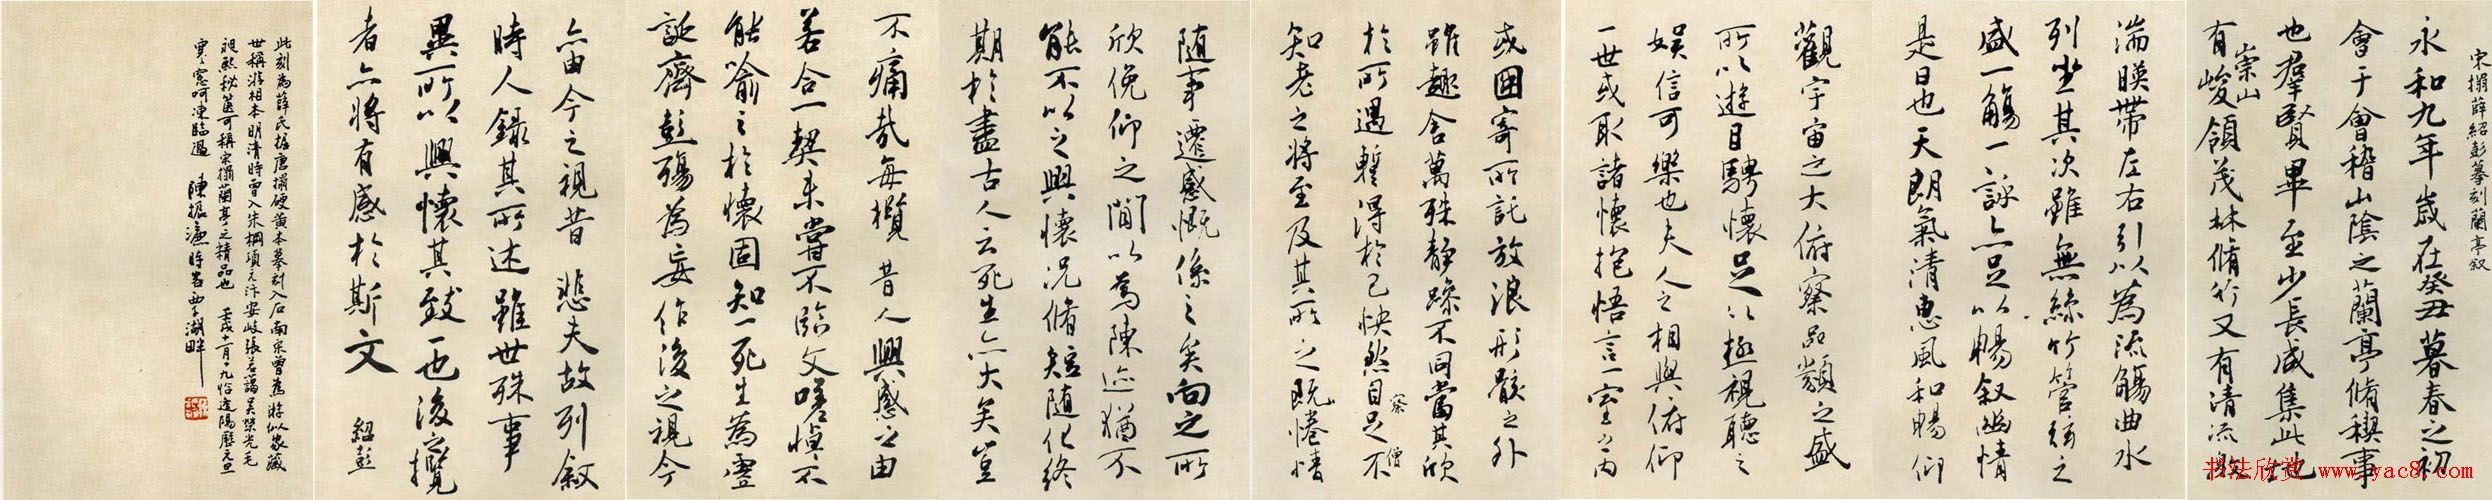 宋搨薛紹彭摹刻蘭亭叙
永和九年歲在癸丑暮春之初
會于會稽山陰之蘭亭脩稧事
也羣賢畢至少長咸集此地
崇山
有峻領茂林脩竹又有清流激
湍暎帶左右引以為流觴曲水
列坐其次雖無絲竹管弦之
盛一觴一詠亦足以暢叙幽情
是日也天朗氣清惠風和暢仰
觀宇宙之大俯察品類之盛
所以遊目騁懷足以極視聽之
娛信可樂也夫人之相與俯仰
一世或取諸懷抱悟言一室之內
或因寄所託放浪形骸之外
雖趣舍萬殊靜躁不同當其欣
於所遇蹔得於己快然自足不
察 僧
知老之將至及其所之既惓情
隨事遷感慨係之矣向之所
欣俛仰之閒以為陳迹猶不
能不以之興懷況脩短隨化終
期於盡古人云死生亦大矣豈
不痛哉每攬昔人興感之由
若合一契未嘗不臨文嗟悼不
能喻之於懷固知一死生為虛
誕齊彭殤為妄作後之視今
亦由今之視昔悲夫故列叙
時人錄其所述雖世殊事
異所以興懷其致一也後之攬
者亦將有感於斯文
紹彭
此刻為薛氏據唐搨硬黃本摹刻入石南宋曾為游似家藏
世稱游相本明清時曾入朱棡項元汴安岐張若靄吳榮光毛
昶熙秘篋可稱宋搨蘭亭之精品也 壬戌十一月十九恰逢陽曆元旦
寒窓呵凍臨過 陳振濂時客西子湖畔
书法欣赏 www.yac8.com